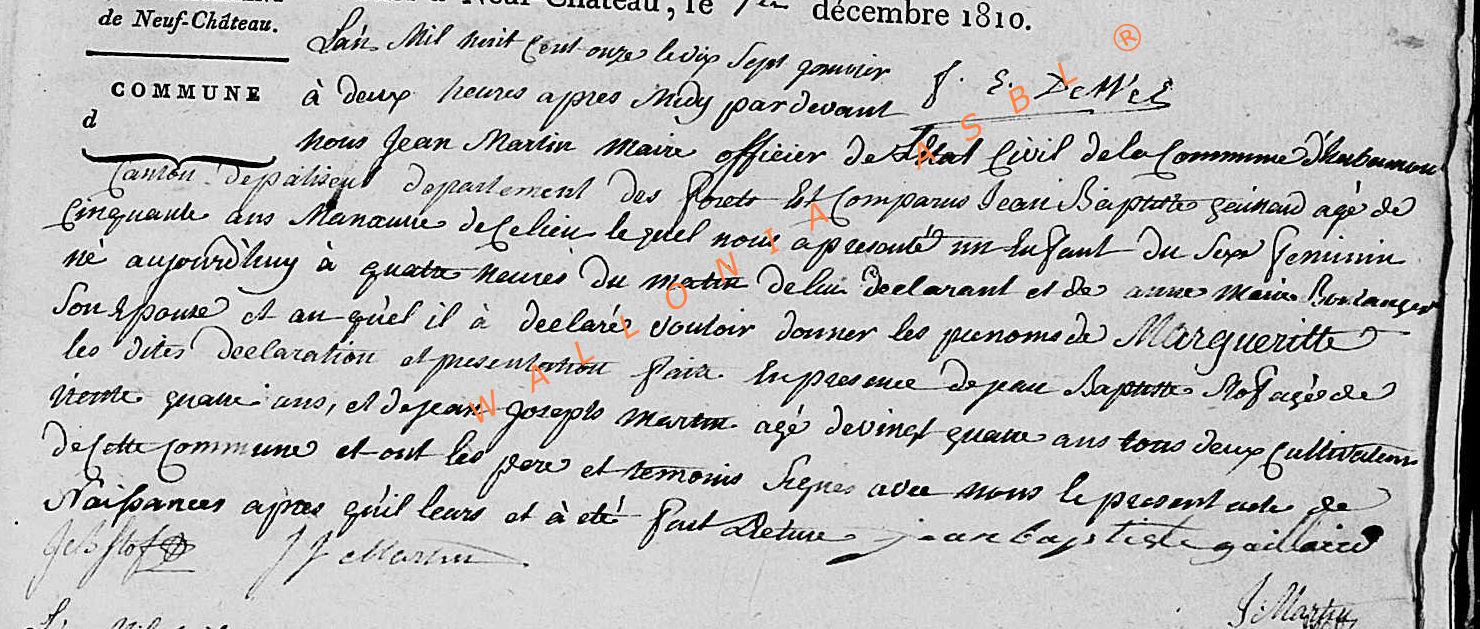 de Neuf-Château.
Neuf-Château, le 1er décembre 1810.
COMMUNE
d
L'an Mil huit Cent onze le dix Sept janvier
à deux heures apres Midy pardevant
nous Jean Martin maire officier de L'Etat Civil de la Commune d'herbeumont
Canton de paliseul departement des forets Est Comparus Jean Baptiste gaillard agé de
Cinquante ans Manœuvre de Ce lieu lequel nous a presenté un Enfant du Sexe feminin
né aujourd'huy à quatre heures du matin de lui declarant et de anne Marie Boulanger
Son Epouse et au quel il à declaré vouloir donner les prenoms de Margueritte
les dites declaration et presentation faite En presence de jean Baptiste Stof agé de
trente quatre ans, et de jean joseph martin agé de vingt quatre ans tous deux Cultivateurs
de Cette Commune et ont les pere et temoins Signes avec nous le present acte de
Naissances apres qu'il leurs et à été fait Lecture jean baptiste gaillaird
Stof J J Martin
J. Martin
WALLONIA ASBL ®